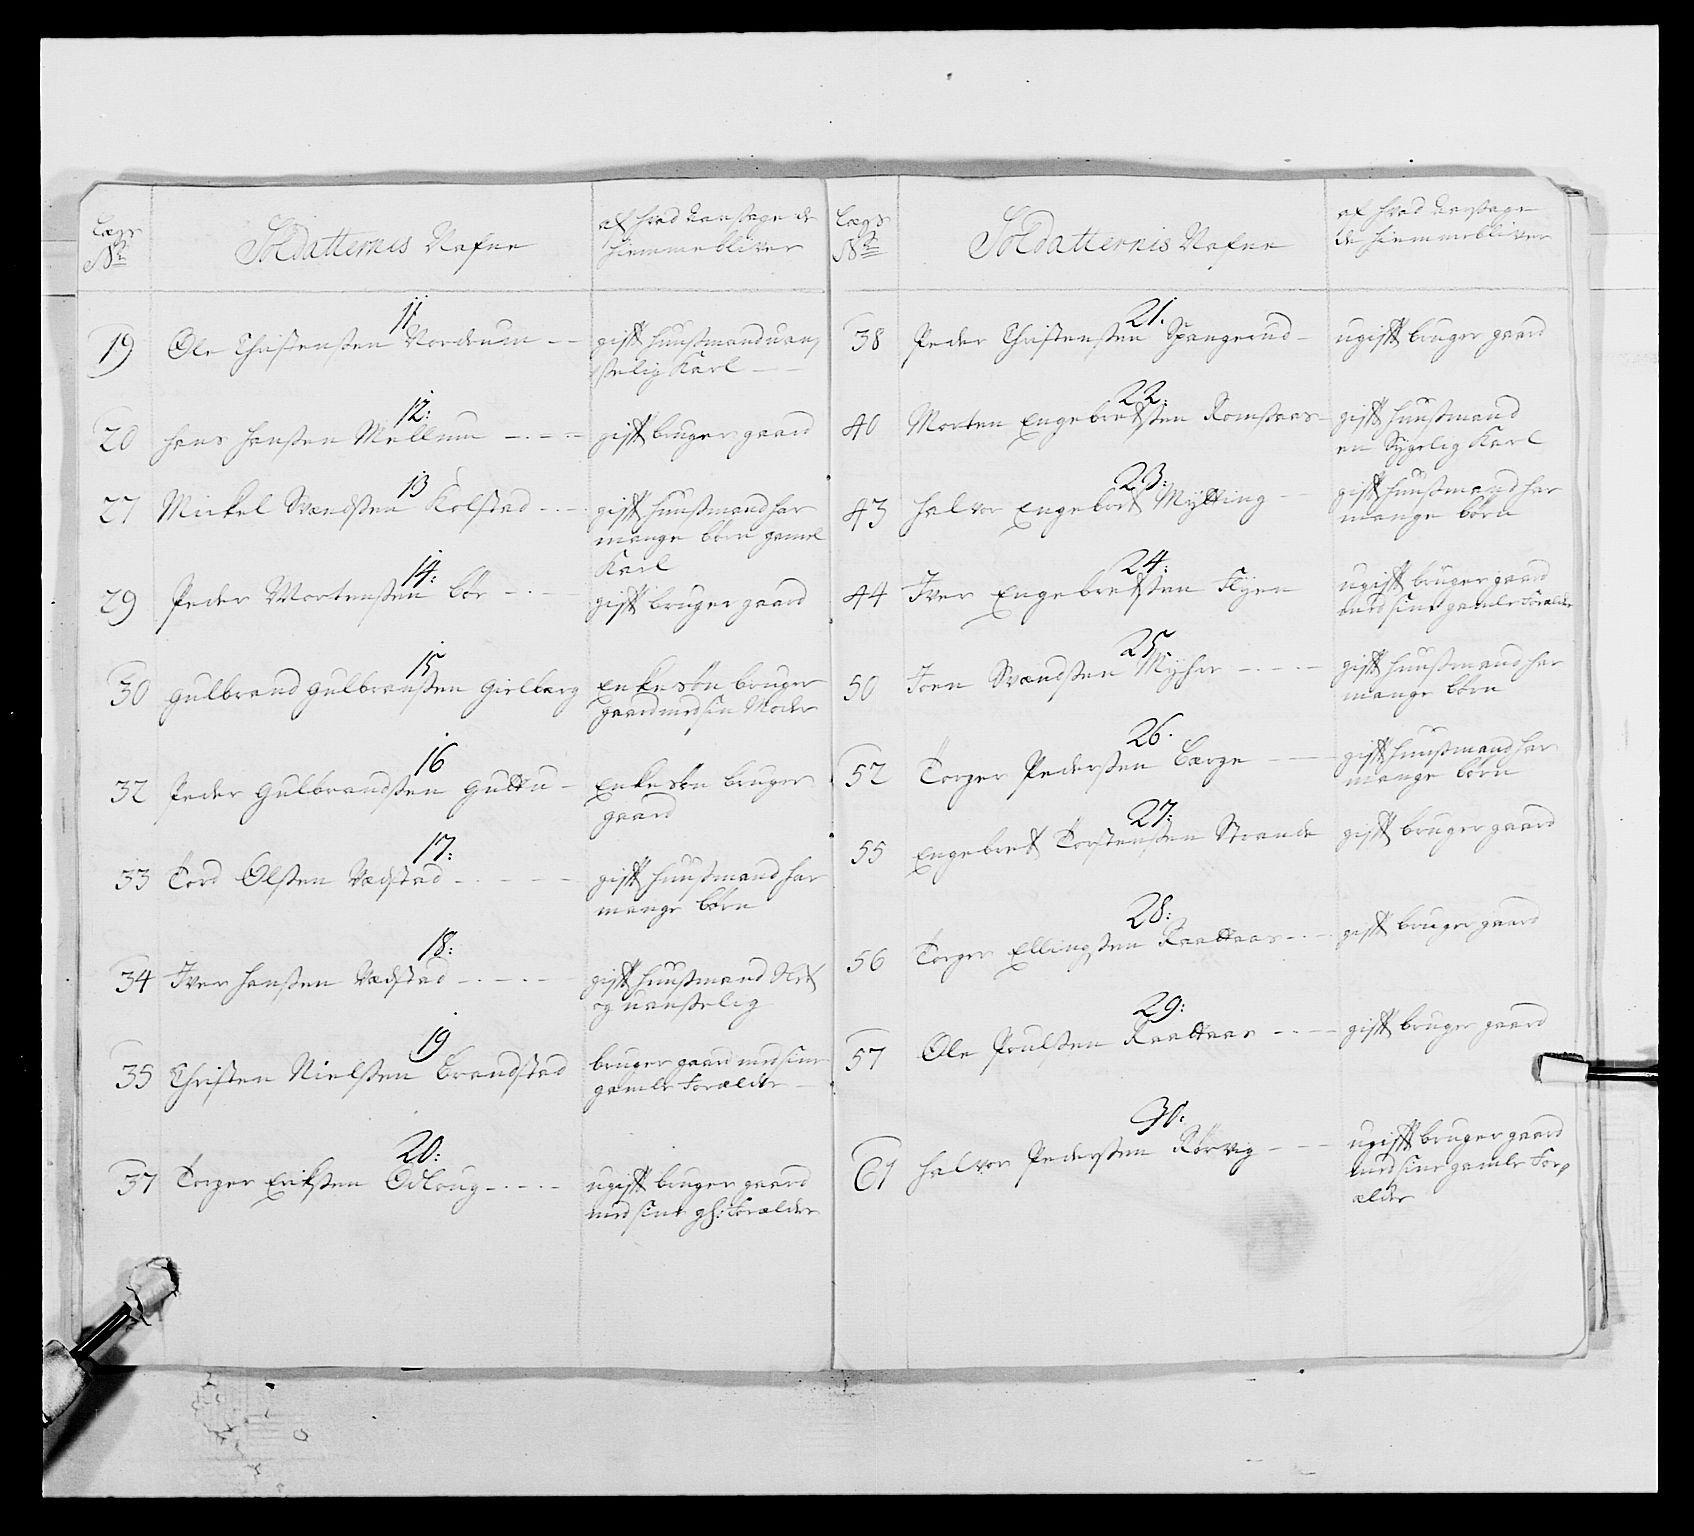 Lægs
No
Soldatternis Nafne
af hvad aarsage de
hiemmebliver
11
19 Ole Christensen Nordrum
gift huusmand uan,
selig Karl
12:
20 hans hansen Mellum
gift bruger gaard
13
27 Mickel Svendsen Kolstad
gift huusmand har
mange børn gamel
Karl
14:
29 Peder Mortensen bør
gift bruger gaard
15
30 gulbrand gulbransen gielberg
Enkesøn bruger
gaard med sin Moder
16
32 Peder gulbrandsen guttu
Enkesøn bruger
gaard
17:
33 Tord Olsen Vadstad
gift huusmand har
mange børn
18:
34 Iver hansen Vadstad
gift huusmand
og uanselig
19
35 Christen Nielsen Brandstad
bruger gaard med sine
gamle Forældre
20:
37 Torger Eriksen Odloug
ugift bruger gaard
med sine gl: Forældre
Lægs
No
Soldatternis Nafne
af hvad aarsage
de hiemmebliver
21.
38 Peder Christensen Spangerud
ugift bruger gaard
22:
40 Morten Engebretsen Romsaas
gift huusmand
en Sygelig Karl
23:
43 halvor Engebret Mytting
gift huusmand har
mange børn
24:
44 Iver Engebretsen Flyen
ugift bruger gaard
med sine gamle Forældre
25.
50 Joen Svendsen Myhre
gift huusmand har
mange børn
26.
52 Torger Pedersen Berge
gift huusmand har
mange børn
27:
55 Engebret Torstensen Strande
gift bruger gaard
28:
56 Torger Ellingsen Kaattaas
gift bruger gaard
29:
57 Ole Poulsen Kaattaas
gift bruger gaard
30:
61 halvor Pedersen Rørvig
ugift bruger gaard
med sine gamle For,
ælder